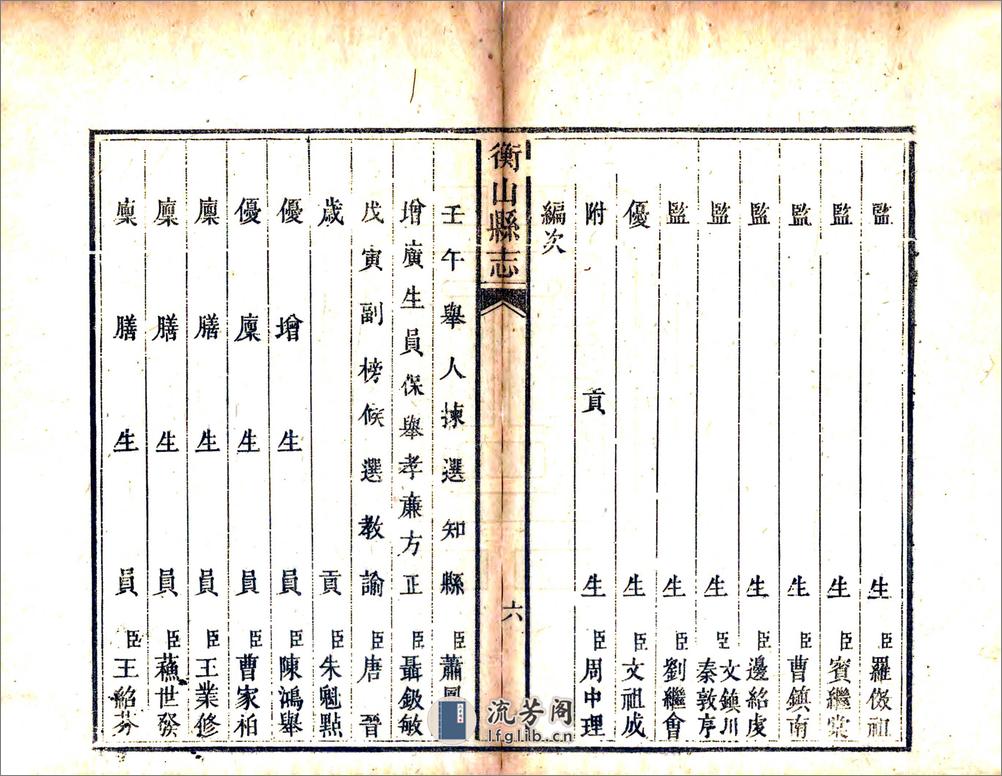 監生臣羅祖
監生臣賓繼棠
監生臣曹鎮南
監生臣邊紹虔
監生臣文鎮川
秦敦序
監生臣劉繼會
優生臣文祖成
附貢生臣周中理
編次
衡山縣志
六
壬午舉人揀選知縣臣蕭鳳
增廣生員保舉孝廉方正臣聶鈒敏
戊寅副榜候選教諭臣唐晉
歲貢臣朱魁點
優增生員臣陳鴻舉
優廩生員臣曹家柏
廩膳生員臣王業修
廩膳生員臣蘓世發
廩膳生員臣王紹芬
流芳阁
lfglib.cn